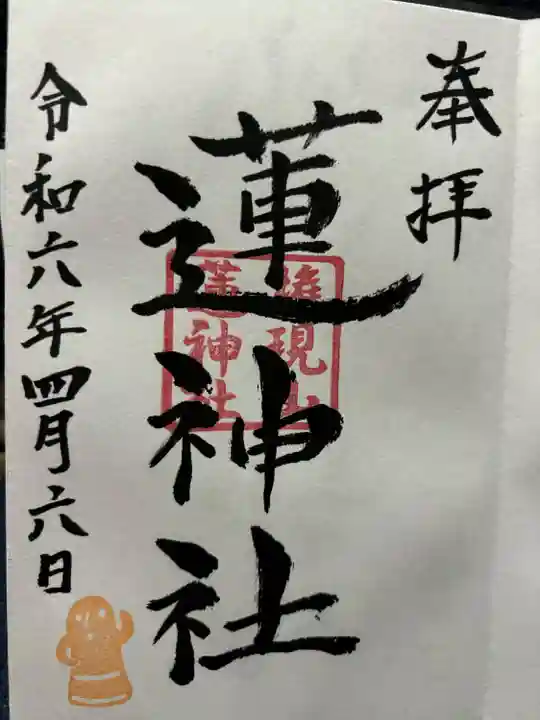 奉拝
蓮神社
権現山
蓮神社
令和六年四月六日